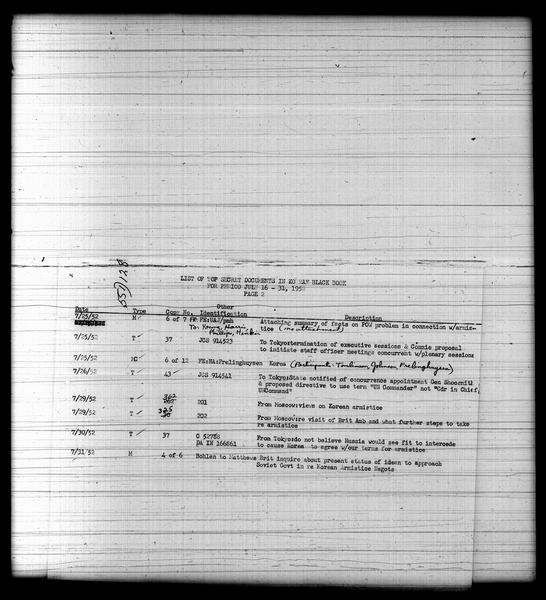 057/128
LIST OF TOP SECRET DOCUMENTS IN KOREAN BLACK BOOK
FOR PERIOD JULY 16 - 31, 1952
PAGE 2
Date Type Copy No. Other Identification Description
7/25/52 M 6 of 7 FE:UAJ/pmh Attaching summary of facts on POW problem in connection w/armis-
To: Young, tice (no attachment)
7/25/52 T 37 JCS 914523 To Tokyo:termination of executive sessions & Commie proposal
to initiate staff officer meetings concurrent w/plenary sessions
7/25/52 MC 6 of 12 FE:NA:Frelinghuysen Korea (Participants - Tomlinson, Johnson, Frelinghuysen)
7/26/52 T 43 JCS 914541 To Tokyo:State notified of concurrence appointment Gen
& proposed directive to use term "UN Commander" not "Cdr in Chief,
UNCommand"
7/29/52 T 362 201 From Moscow:views on Korean armistice
7/29/52 T 325 202 From Moscow:re visit of Brit Amb and what further steps to take
re armistice
7/30/52 T 37 C 52788 From Tokyo:do not believe Russia would see fit to intercede
DA IN 166861 to cause Korea to agree w/our terms for armistice
7/31/52 M 4 of 6 Bohlen to Matthews Brit inquire about present status of idean to approach
Soviet Govt in re Korean Armistice Negots